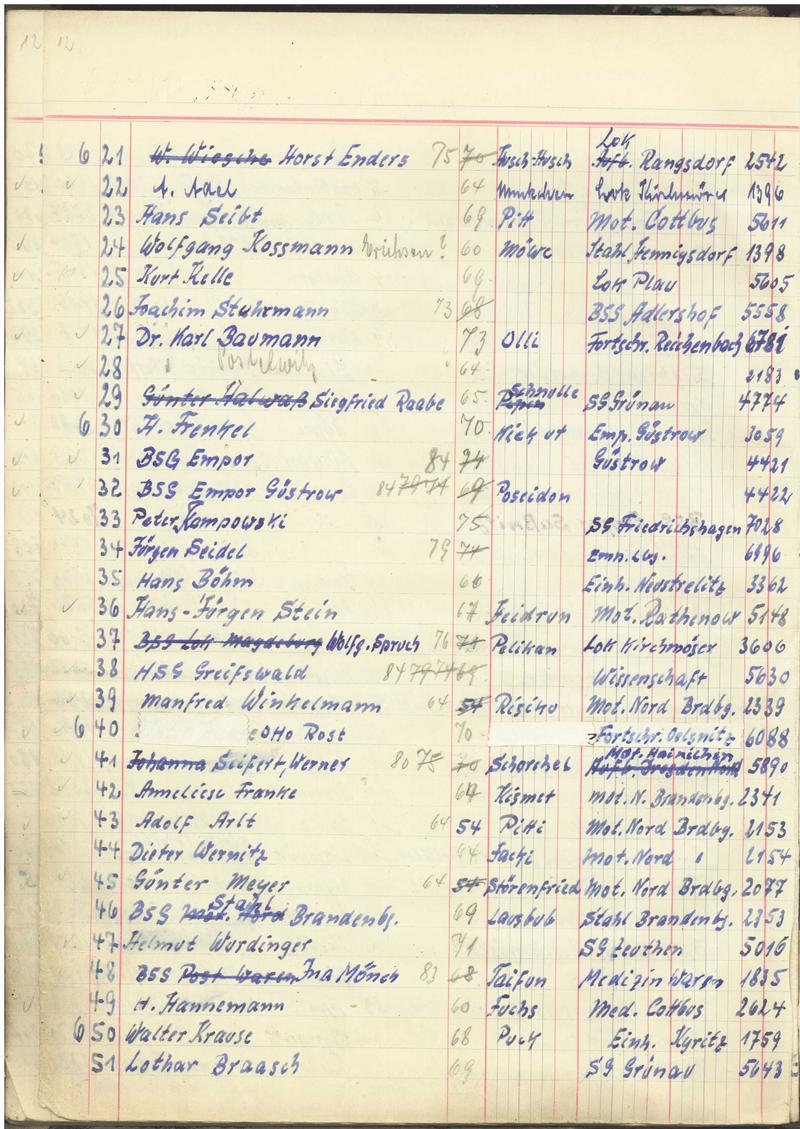 12 12
6 21 W. Wiesche Horst Enders 75 70 Husch-Husch Lok Aufb. Rangsdorf 2542
22 A. Adel 64 Lok Kirchmöser 1396
23 Hans Seibt 69 Pitt Mot. Cottbus 5611
24 Wolfgang Kossmann Erichsen? 60 Möwe Stahl Hennigsdorf 1398
25 Kurt Kelle 69 Lok Plau 5605
26 Joachim Stuhrmann 73 68 BSG Adlershof 5558
27 Dr. Karl Baumann 73 Olli Fortschr. Reichenbach 6781
28 Postelwitz 64 2183
29 Günter Halwaß Siegfried Raabe 65 Schnulle SG Grünau 4774
6 30 H. Frenkel 70 Kiek ut Emp. Güstrow 3059
31 BSG Empor 84 74 Güstrow 4421
32 BSG Empor Güstrow 84 79 74 69 Poseidon 4422
33 Peter Kampowski 75 SG Friedrichshagen 7028
34 Jürgen Seidel 79 74 6996
35 Hans Böhm 66 Einh. Neustrelitz 3362
36 Hans-Jürgen Stein 67 Feidrun Mot. Rathenow 5148
37 BSG Lok Magdeburg Wolfg. Spruch 76 71 Pelikan Lok Kirchmöser 3606
38 HSG Greifswald 84 79 74 69 Wissenschaft 5630
39 Manfred Winkelmann 64 54 Risiko Mot. Nord Brdbg. 2339
6 40 Otto Rost 70 Fortschr. Oelsnitz 6088
41 Johanna Seifert, Werner 80 75 70 Schorchel Mot. Hainichen Aufb. Dresden Nord 5890
42 Anneliese Franke 67 Kismet Mot. N. Brandenbg. 2341
43 Adolf Arlt 64 54 Pitti Mot. Nord Brdbg. 2153
44 Dieter Wernitz 64 Facki Mot. Nord " 2154
45 Günter Meyer 64 54 Störenfried Mot. Nord Brdbg. 2077
46 BSG Mot. Nord Stahl Brandenbg. 69 Lausbub Stahl Brandenbg. 2353
47 Helmut Wurdinger 71 SG Leuthen 5016
48 BSG Post Waren Ina Mönch 83 68 Taifun Medizin Waren 1835
49 H. Hannemann 60 Fuchs Med. Cottbus 2624
6 50 Walter Krause 68 Puck Einh. Kyritz 1759
51 Lothar Braasch 69 SG Grünau 5643